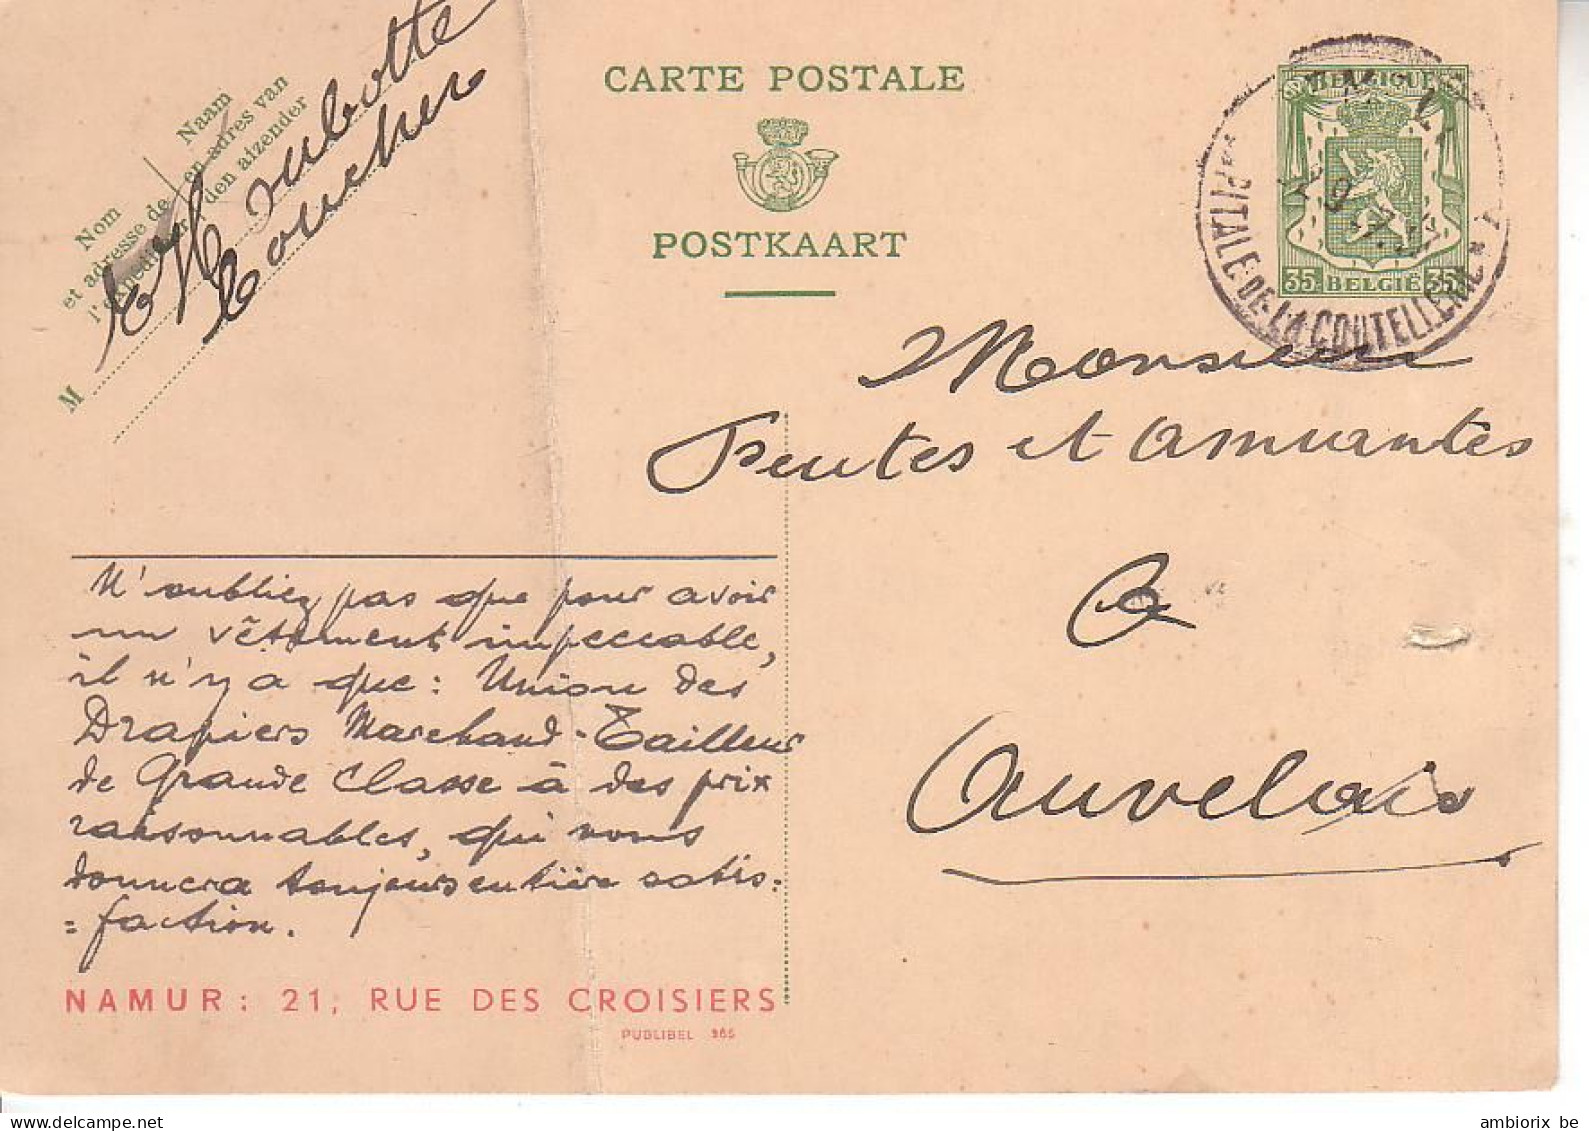 CARTE POSTALE
POSTKAART
Nom
et adresse de
l'expéditeur
Naam
en adres van
den afzender
M
BELGIQUE
35 BELGIË 35
PITALE-DE-LA COUTELLERIE
Monsieur
et
à
Auvelais
N'oubliez pas que pour avoir
un vêtement impeccable,
il n'y a que: Union des
Drapiers Marchand-Tailleur
de Grande Classe à des prix
raisonnables, qui vous
donnera toujours entière satis=
=faction.
NAMUR: 21, RUE DES CROISIERS
PUBLIBEL 365
delcampe.net
ambiorix be